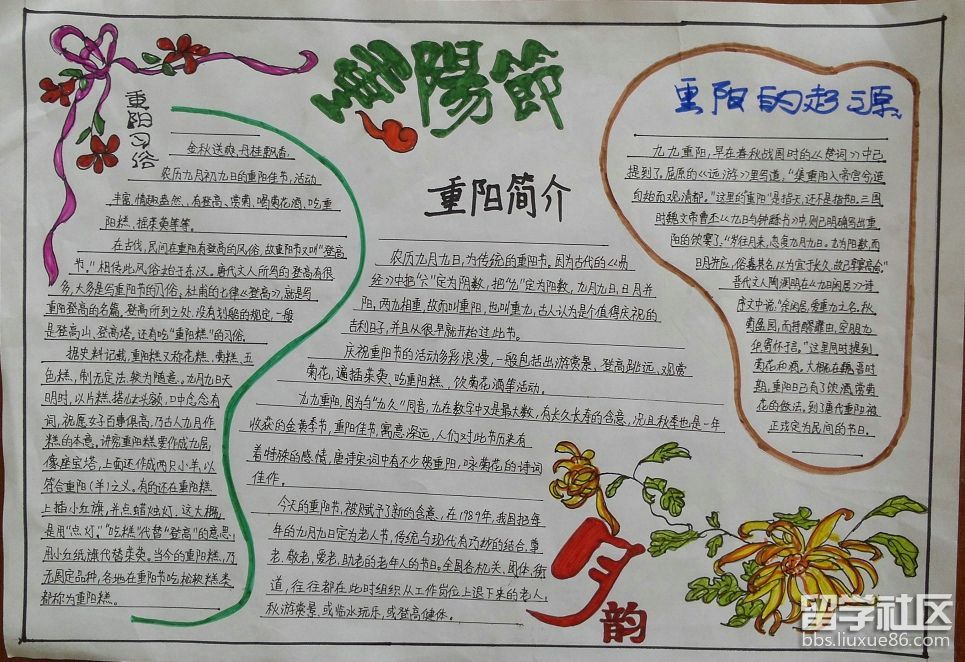 重陽節
重阳习俗
金秋送爽,丹桂飘香,
农历九月初九日的重阳佳节,活动
丰富,情趣盎然,有登高、赏菊、喝菊花酒、吃重
阳糕、插茱萸等等。
在古代,民间在重阳有登高的风俗,故重阳节又叫“登高
节。”相传此风俗始于东汉。唐代文人所写的登高有很
多,大多是写重阳节的习俗,杜甫的七律《登高》,就是写
重阳登高的名篇,登高所到之处,没有划一的规定,一般
是登高山、登高塔。还有吃“重阳糕”的习俗。
据史料记载,重阳糕又称花糕、菊糕、五
色糕,制无定法,较为随意。九月九日天
明时,以片糕搭儿女头额,口中念念有
词,祝愿女子百事俱高,乃古人九月作
糕的本意。讲究重阳糕要作成九层,
像座宝塔,上面还作成两只小羊,以
符合重阳(羊)之义。有的还在重阳糕
上插小红旗,并点蜡烛灯。这大概
是用“点灯,”“吃糕”代替“登高”的意思,
用小红纸旗代替茱萸。当今的重阳糕,乃
无固定品种,各地在重阳节吃松软糕类
都称为重阳糕。
重阳简介
农历九月九日,为传统的重阳节。因为古代的《易
经》中把“六”定为阴数,把“九”定为阳数,九月九日,日月并
阳,两九相重,故而叫重阳,也叫重九,古人认为是个值得庆祝的
吉利日子,并且从很早就开始过此节。
庆祝重阳节的活动多彩浪漫,一般包括出游赏景、登高眺远、观赏
菊花、遍插茱萸、吃重阳糕、饮菊花酒等活动。
九九重阳,因为与“九久”同音,九在数字中又是最大数,有长久长寿的含意,况且秋季也是一年
收获的金黄季节,重阳佳节,寓意深远,人们对此节历来有
着特殊的感情,唐诗宋词中有不少贺重阳,咏菊花的诗词
佳作。
今天的重阳节,被赋予了新的含意,在1989年,我国把每
年的九月九日定为老人节,传统与现代有巧妙的结合,尊
老、敬老、爱老、助老的老年人的节日。全国各机关、团体、街
道,往往都在此时组织从工作岗位上退下来的老人,
秋游赏景、或临水玩乐、或登高健体。
重阳的起源
九九重阳,早在春秋战国时的《楚词》中已
提到了。屈原的《远游》里写道:“集重阳入帝宫兮造
旬始而观清都。”这里的“重阳”是指天,还不是指节日。三国
时魏文帝曹丕《九日与钟繇书》中,则已明确写出重
阳的饮宴了。“岁往月来,忽复九月九日。九为阳数,而
日月并应,俗嘉其名,以为宜于长久,故已享宴高会。”
晋代文人陶渊明在《九日闲居》诗
序文中说:“余闲居,爱重九之名,秋
菊盈园,而持醪靡由,空服九
华,寄怀于言。”这里同时提到
菊花和酒。大概在魏晋时
期,重阳日已有了饮酒,赏菊
花的做法,到了唐代重阳被
正式定为民间的节日。
韵
留学社区
bbs.liuxue86.com